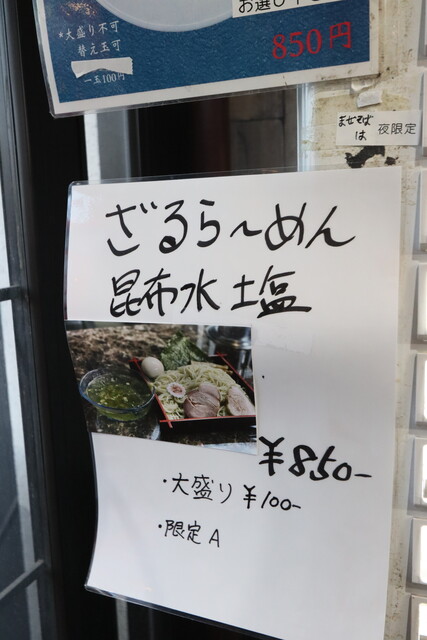 *大盛り不可
替え玉可
一玉100円
850円
まぜそば
は
夜限定
ざるら〜めん
昆布水 塩
¥850-
・大盛り ¥100-
・限定 A